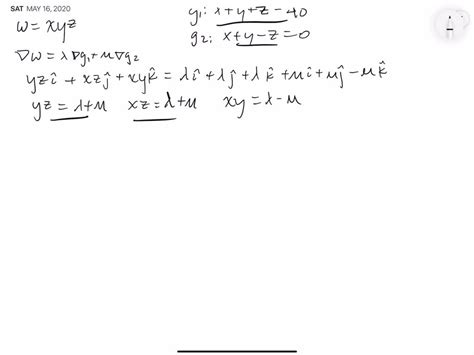 SAT MAY 16, 2020
w = xyz
g₁: x+y+z-40
g₂: x+y-z=0
∇w = λ∇g₁+μ∇g₂
yzî + xzĵ + xyk̂ = λî+λĵ+λk̂+μî+μĵ-μk̂
yz = λ+μ xz = λ+μ xy = λ-μ